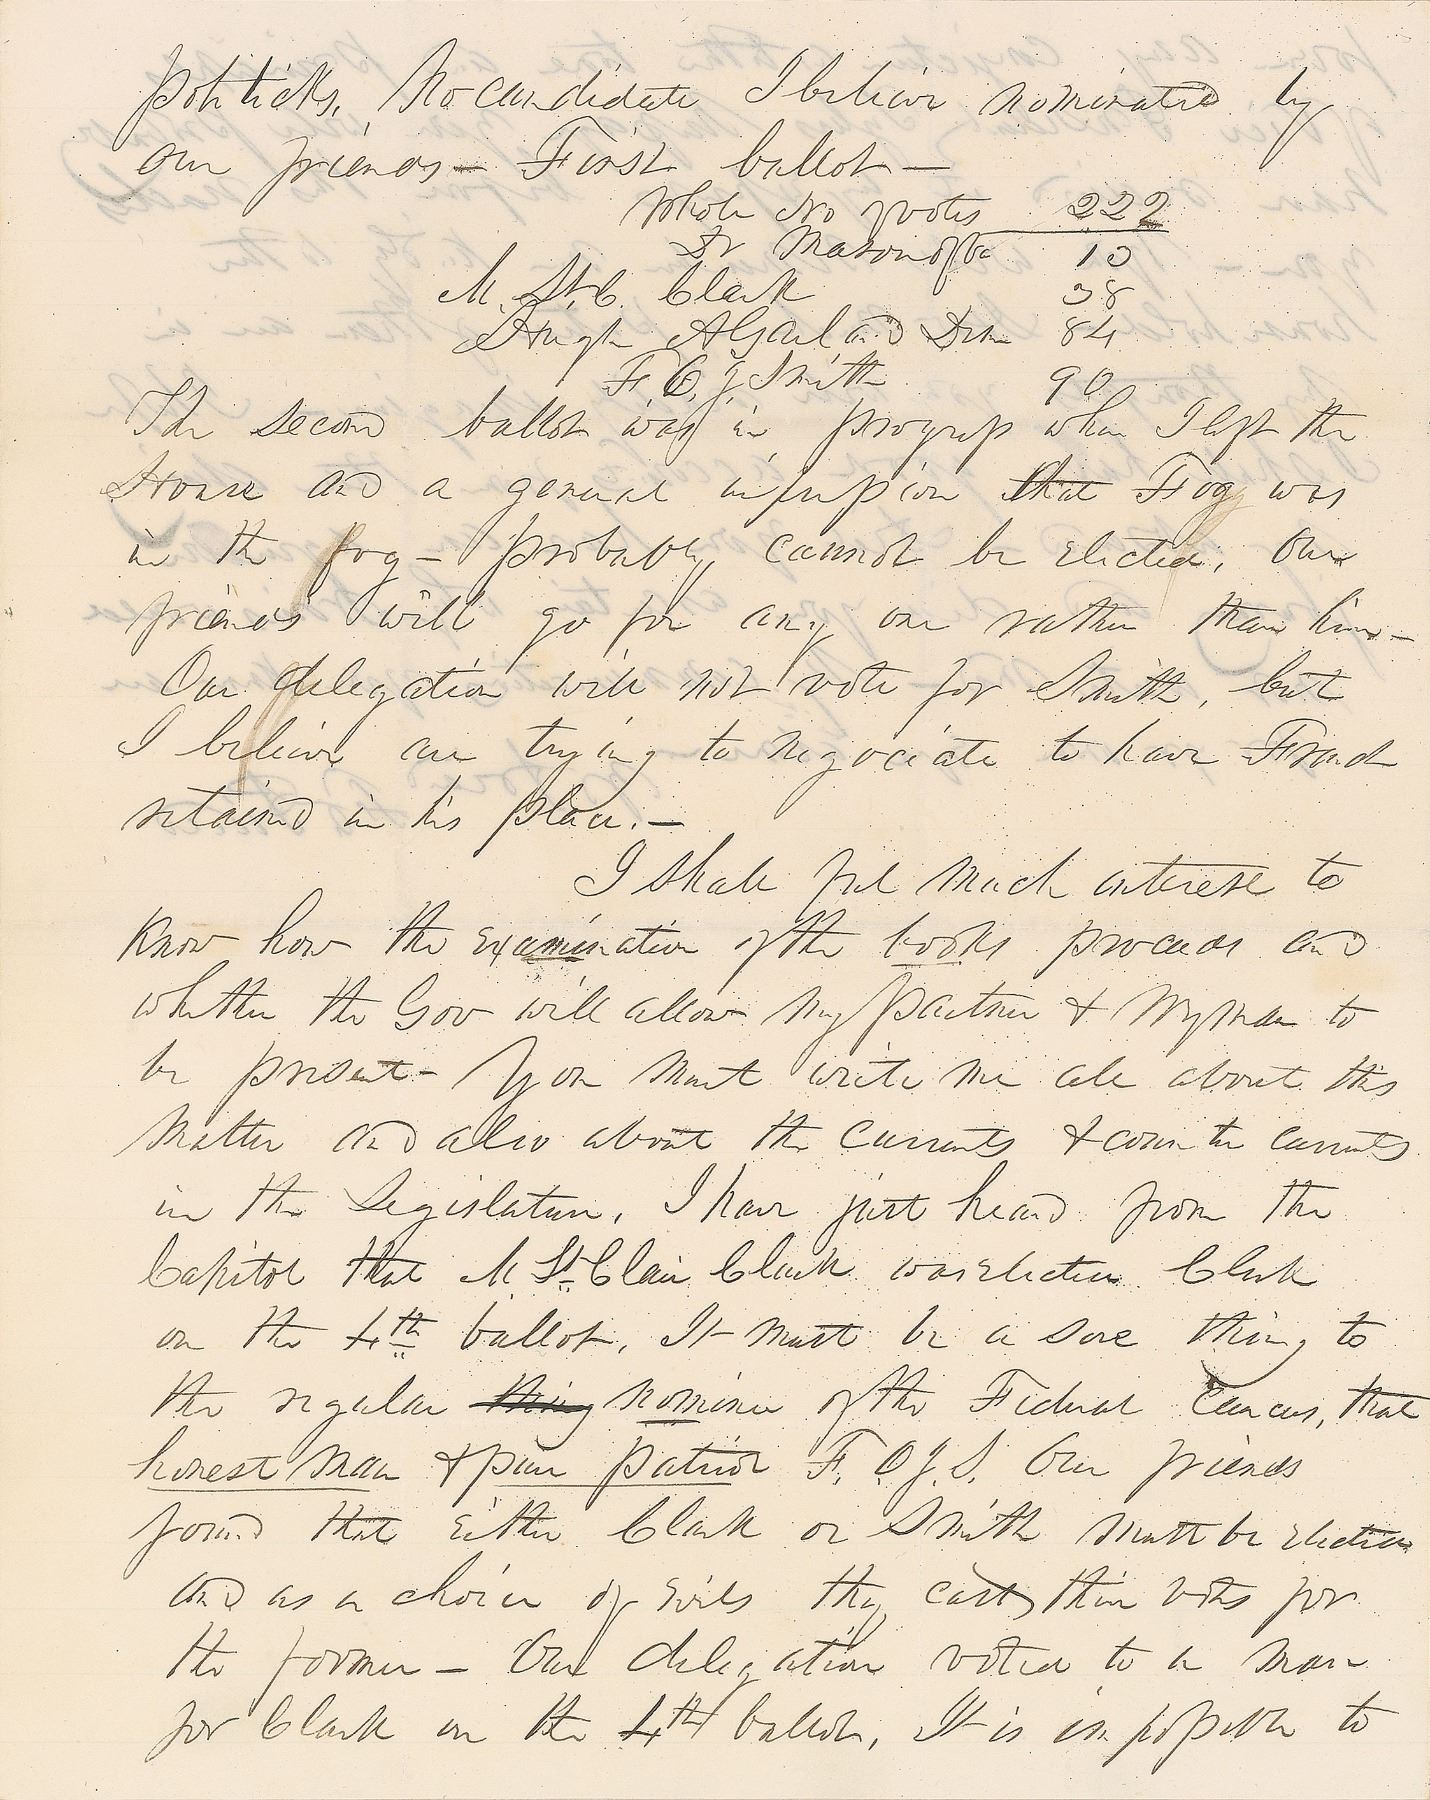 politicks, No candidate I believe nominated by
our friends — First ballot —
Whole No of votes 222
Dr Mason of 10
M. St. C. Clark 38
Hugh A Garland Dem 84
F. O. J Smith 90
The second ballot was in progress when I left the
House and a general impression that Fog was
in the fog — probably cannot be elected, Our
friends will go for any one rather than him —
Our delegation will not vote for Smith, but
I believe are trying to negociate to have French
retained in his place. —
I shall feel much interest to
know how the examination of the books proceeds and
whether the Gov will allow my partner & Wyman to
be present — You must write me all about this
matter and also about the currents & counter currents
in the Legislature, I have just heard from the
Capitol that M St. Clair Clark was elected Clerk
on the 4th ballot, It must be a sore thing to
the regular thing nominee of the Federal Caucus, that
honest man & pure patriot F. O. J. S. Our friends
found that either Clark or Smith must be elected
and as a choice of evils they cast their votes for
the former — Our delegation voted to a man
for Clark on the 4th ballot, It is impossible to